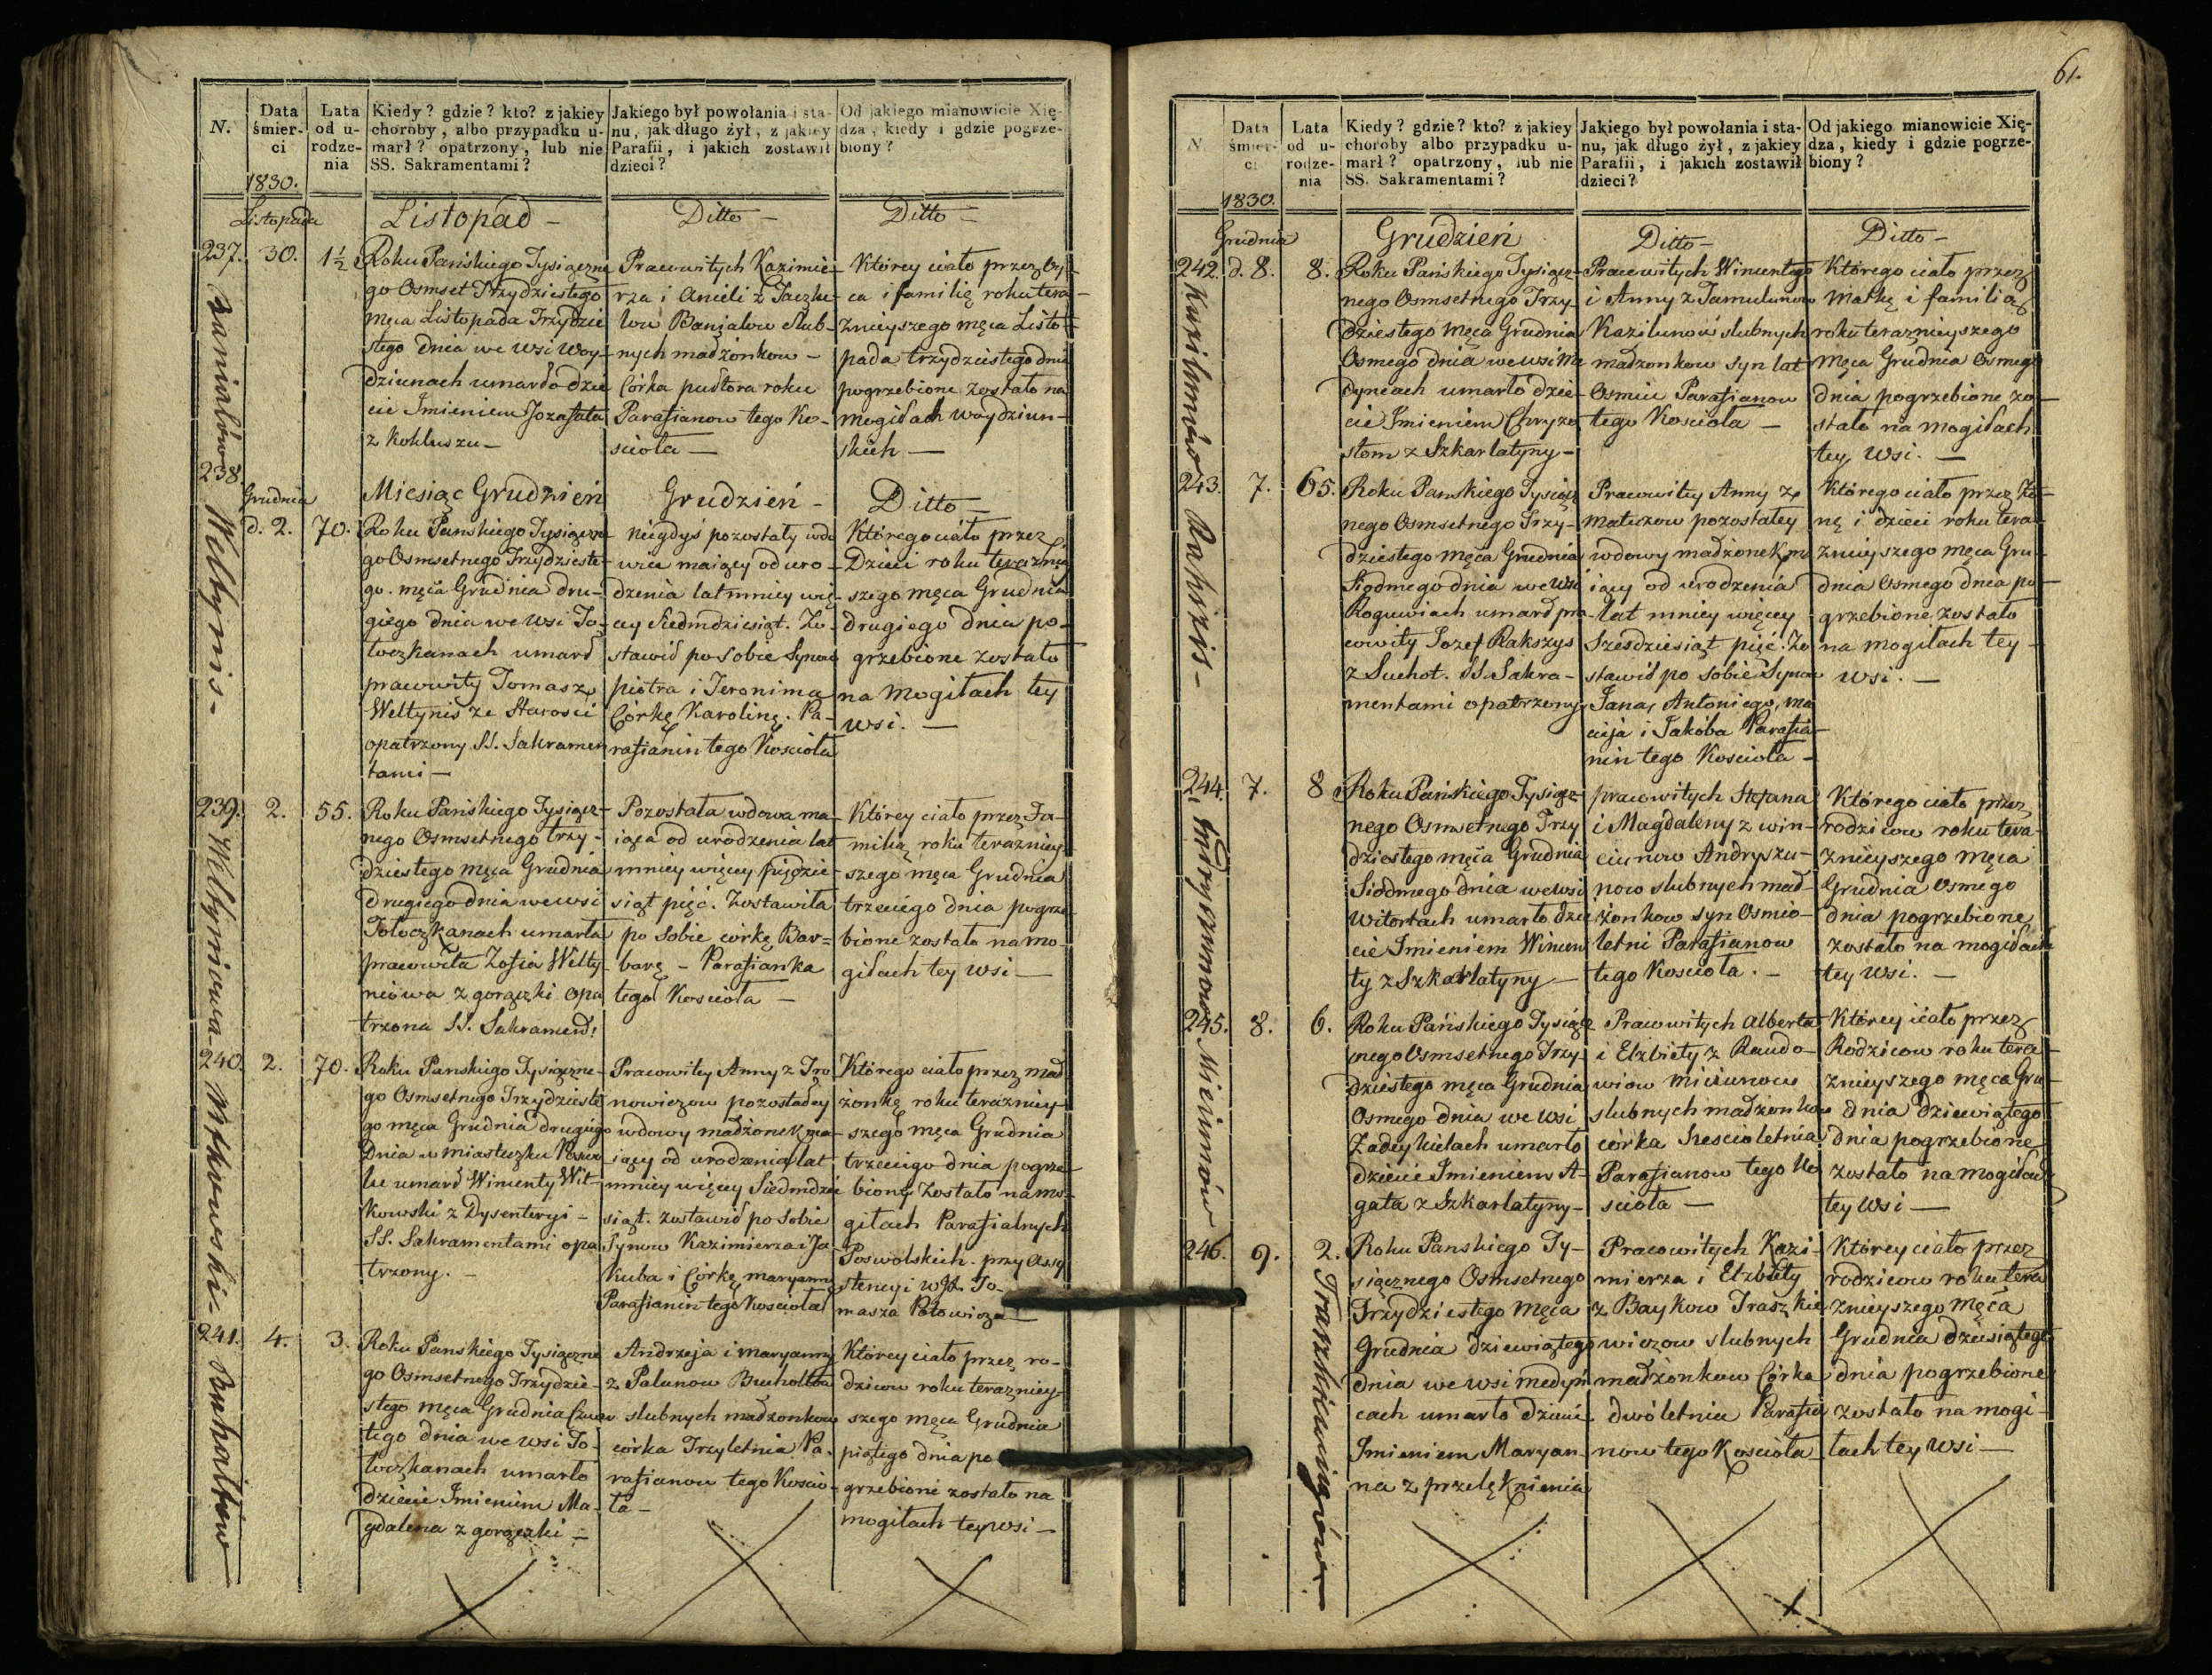 N.
Data śmier-ci
1830.
Lata od u-rodze-nia
Kiedy? gdzie? kto? z jakiey
choroby, albo przypadku u-
marł? opatrzony, lub nie
SS. Sakramentami?
Jakiego był powołania i sta-
nu, jak długo żył, z jakiey
Parafii, i jakich zostawił
dzieci?
Od jakiego mianowicie Xię-
dza, kiedy i gdzie pogrze-
biony?
Listopada
Listopad -
Ditto -
Ditto -
237.
30.
1½
Roku Pańskiego Tysiączne
go Osmset Trzydziestego
Męca Listopada Trzydzie
stego dnia we wsi Woy-
dziunach umarło dzie
cie Imieniem Jozafata
z Kokluszu -
Pracowitych Kazimie-
rza i Anieli z
slub-
nych madżonkow -
Córka pułtora roku
Parafianow tego Ko-
scioła -
Którey ciało przez Oy-
ca i familię roku tera-
znieyszego męca Listo-
pada trzydziestego dnia
pogrzebione zostało na
mogiłach woydziun-
skich -
238.
Grudnia
d. 2.
70.
Welżynis -
Miesiąc Grudzień
Roku Panskiego Tysiączne
go Osmsetnego Trzydzieste-
go męca Grudnia dru-
giego dnia we wsi To-
łoczkanach umarł
pracowity Tomasz
Weltynis ze Starosci
opatrzony SS. Sakramen
tami -
Grudzień -
niegdyś pozostały wdo
wiec maiący od uro-
dzenia lat mniey wię-
cey Siedmdziesiąt. Zo-
stawił po sobie Synow
piotra i Jeronima
Córkę Karolinę. Pa-
rafianin tego Koscioła
Ditto -
Którego ciało przez
Dzieci roku teraznie
szego męca Grudnia
drugiego dnia po-
grzebione zostało
na mogiłach tey
wsi. -
239.
2.
55.
Roku Pańskiego Tysiącz-
nego Osmsetnego trzy-
dziestego męca Grudnia
drugiego dnia we wsi
Tołoczkanach umarła
pracowita Zofia Welty-
niowa z gorączki opa
trzona SS. Sakrament:
Pozostała wdowa ma-
iąca od urodzenia lat
mniey więcey pięćdzie-
siąt pięć. Zostawiła
po sobie córkę Bar=
barę - Parafianka
tego Koscioła -
Którey ciało przez Fa-
milią roku terazniey
szego męca Grudnia
trzeciego dnia pogrze-
bione zostało na mo-
giłach tey wsi -
240.
2.
70.
Witkowski -
Roku Panskiego Tysiączne-
go Osmsetnego Trzydzieste
go męca Grudnia drugiego
Dnia w miasteczku
umarł Wincenty Wit-
kowski z Dysenteryi -
SS. Sakramentami opa
trzony. -
Pracowitey Anny z Iro
nowiczow pozostałey
wdowy madżonek ma-
iący od urodzenia lat
mniey więcey Siedmdzie
siąt. zostawił po sobie
Synow Kazimierza i Ja-
kuba i Córkę maryannę
Parafianin tego Koscioła
Którego ciało przez mad
żonkę roku terazniey-
szego męca Grudnia
trzeciego dnia pogrze-
biony zostało na mo-
giłach Parafialnych
Poswolskich przy Assy
stencyi W.X. To-
masza
241.
4.
3.
Roku Panskiego Tysiączne
go Osmsetnego Trzydzie-
stego męca Grudnia Czwar
tego dnia we wsi To-
łoczkanach umarło
dziecie Imieniem Ma-
gdalena z gorączki -
Andrzeja i maryanny
z Palunow
slubnych madżonkow
córka Trzyletnia Pa-
rafianow tego Koscio-
ła -
Którey ciało przez ro-
dzicow roku terazniey-
szego męca Grudnia
piątego dnia po
grzebione zostało na
mogiłach tey wsi -
61.
N.
Data śmier-ci
1830.
Lata od u-rodze-nia
Kiedy? gdzie? kto? z jakiey
choroby albo przypadku u-
marł? opatrzony, lub nie
SS. Sakramentami?
Jakiego był powołania i sta-
nu, jak długo żył, z jakiey
Parafii, i jakich zostawił
dzieci?
Od jakiego mianowicie Xię-
dza, kiedy i gdzie pogrze-
biony?
Grudnia
Grudzień
Ditto -
Ditto -
242.
d. 8.
8.
Kazilunów
Roku Pańskiego Tysiącz-
nego Osmsetnego Trzy-
dziestego Męca Grudnia
Osmego dnia we wsi Me
dyncach umarło dzie-
cie Imieniem Chryzo
stom z Szkarlatyny -
Pracowitych Wincentego
i Anny z Jamulunow
Kazilunow slubnych
madżonkow Syn lat
Osmiu Parafianow
tego Koscioła -
Którego ciało przez
Matkę i familią
roku teraznieyszego
Męca Grudnia Osmego
dnia pogrzebione zo-
stało na mogiłach
tey wsi. -
243.
7.
65.
Rakszis -
Roku Panskiego Tysiącz
nego Osmsetnego Trzy-
dziestego męca Grudnia
Siodmego dnia we wsi
umarł pra-
cowity Jozef Rakszys
z Suchot. SS. Sakra-
mentami opatrzony
Pracowitey Anny z
Matuzow pozostałey
wdowy madżonek ma
iący od urodzenia
lat mniey więcey
Szesdziesiąt pięć. Zo
stawił po sobie Synow
Jana, Antoniego, Ma
cieja i Jakóba Parafia-
nin tego Koscioła -
Którego ciało przez Żo-
nę i dzieci roku tera-
znieyszego męca Gru-
dnia Osmego dnia po-
grzebione zostało
na mogiłach tey
wsi. -
244.
7.
8
Andryszunow
Roku Pańskiego Tysiącz-
nego Osmsetnego Trzy
dziestego męca Grudnia
Siodmego dnia we wsi
Witortach umarło dzie
cie Imieniem Wincen
ty z Szkarlatyny -
pracowitych Stefana
i Magdaleny z win-
ciunow Andryszu-
now slubnych mad-
żonkow syn Osmio-
letni Parafianow
tego Koscioła. -
Którego ciało przez
rodzicow roku tera-
znieyszego męca
Grudnia Osmego
dnia pogrzebione
zostało na mogiłach
tey wsi. -
245.
8.
6.
Miciunów
Roku Pańskiego Tysiącz
nego Osmsetnego Trzy-
dziestego męca Grudnia
Osmego dnia we wsi
Zadeykielach umarło
dziecie Imieniem A-
gata z Szkarlatyny -
Pracowitych Alberta
i Elzbiety z Raudo-
wiow Miciunow
slubnych madżonkow
córka Szescioletnia
Parafianow tego Ko
scioła -
Którey ciało przez
Rodzicow roku tera-
znieyszego męca Gru-
dnia dziewiątego
dnia pogrzebione
zostało na mogiłach
tey wsi -
246.
9.
2.
Traszkiewiczów
Roku Panskiego Ty-
siącznego Osmsetnego
Trzydziestego Męca
Grudnia dziewiątego
dnia we wsi medyn
cach umarło dziecie
Imieniem Maryan-
na z przelęknienia
Pracowitych Kazi-
mierza i Elzbiety
z Baykow Traszkie
wiczow slubnych
madżonkow Córka
dwóletnia Parafia
now tego Koscioła
Którey ciało przez
rodzicow roku tera
znieyszego Męca
Grudnia dziesiątego
dnia pogrzebione
zostało na mogi-
łach tey wsi -